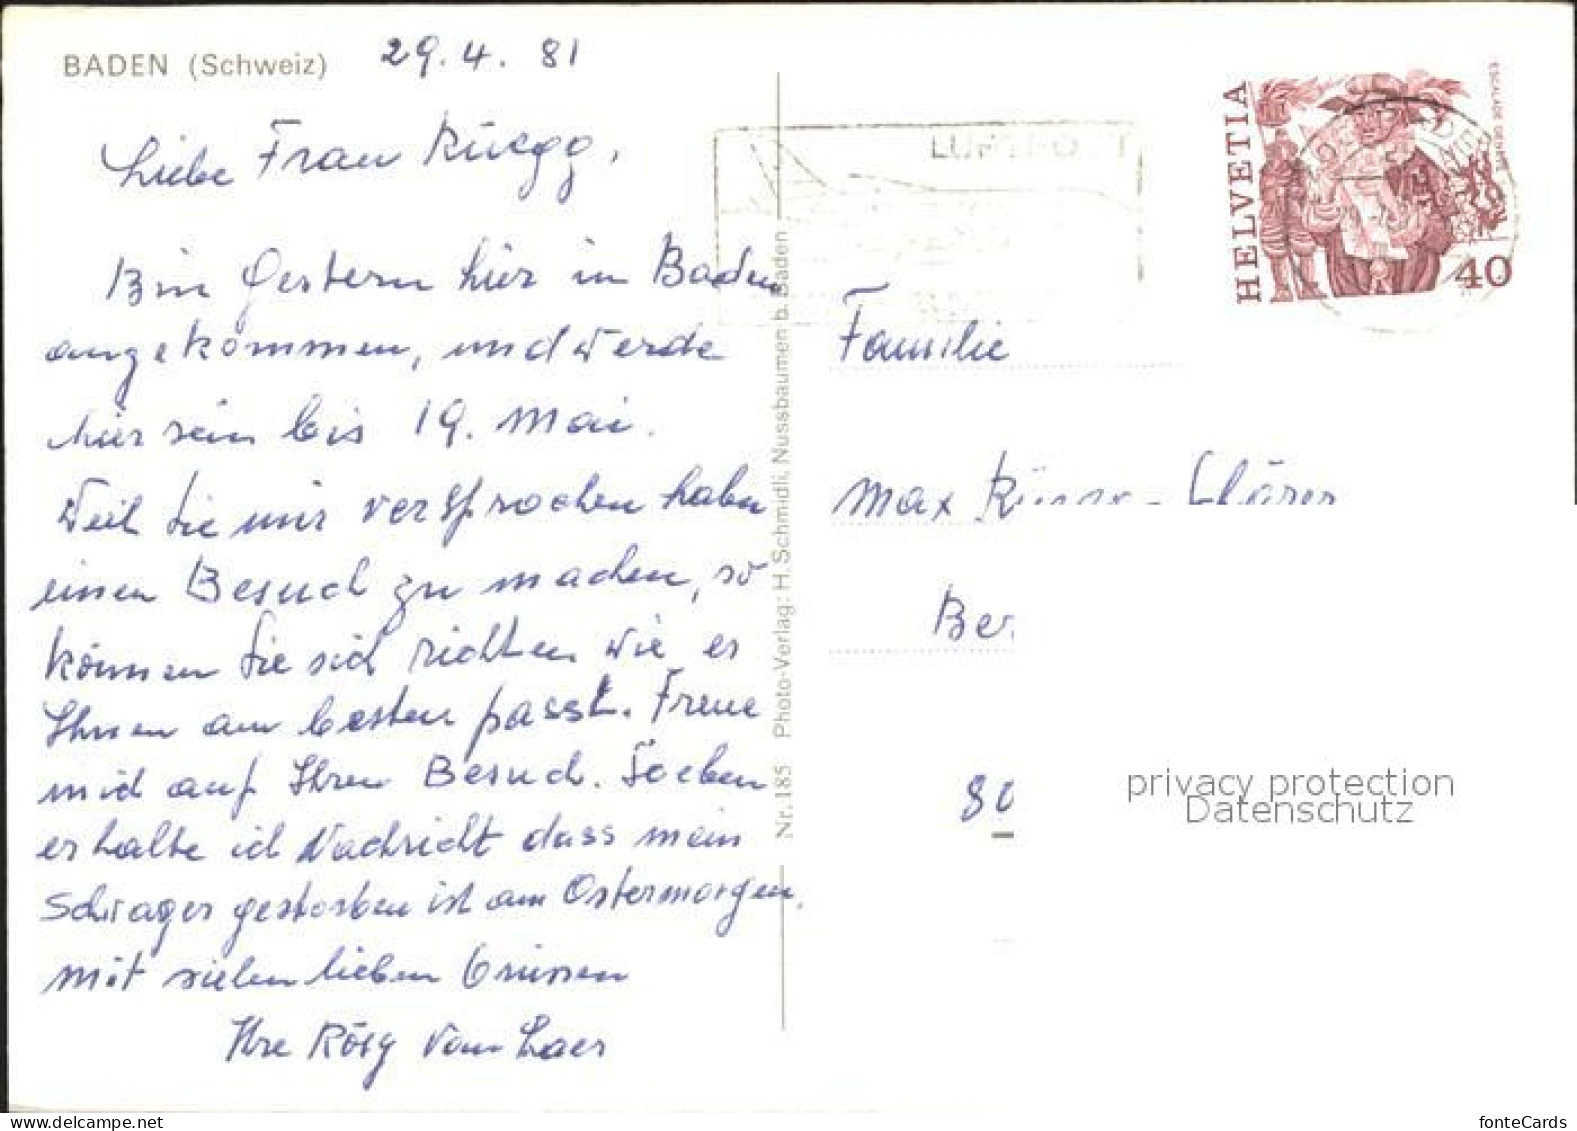 BADEN (Schweiz)
29.4.81
Liebe Frau Rüegg,
Bin Gestern hier in Baden
angekommen, und werde
hier sein bis 19. Mai.
Weil Sie mir versprochen haben
einen Besuch zu machen, so
können Sie sich richten wie es
Ihnen am besten passt. Freue
mich auf Ihren Besuch. Soeben
erhalte ich Nachricht dass mein
Schwager gestorben ist am Ostermorgen.
Mit vielen lieben Grüssen
Ihre
Nr. 185 Photo-Verlag: H. Schmidli, Nussbaumen b. Baden
LUFTPOST
HELVETIA
40
ESCALADE GENÈVE
Familie
Max
privacy protection
Datenschutz
fonteCards